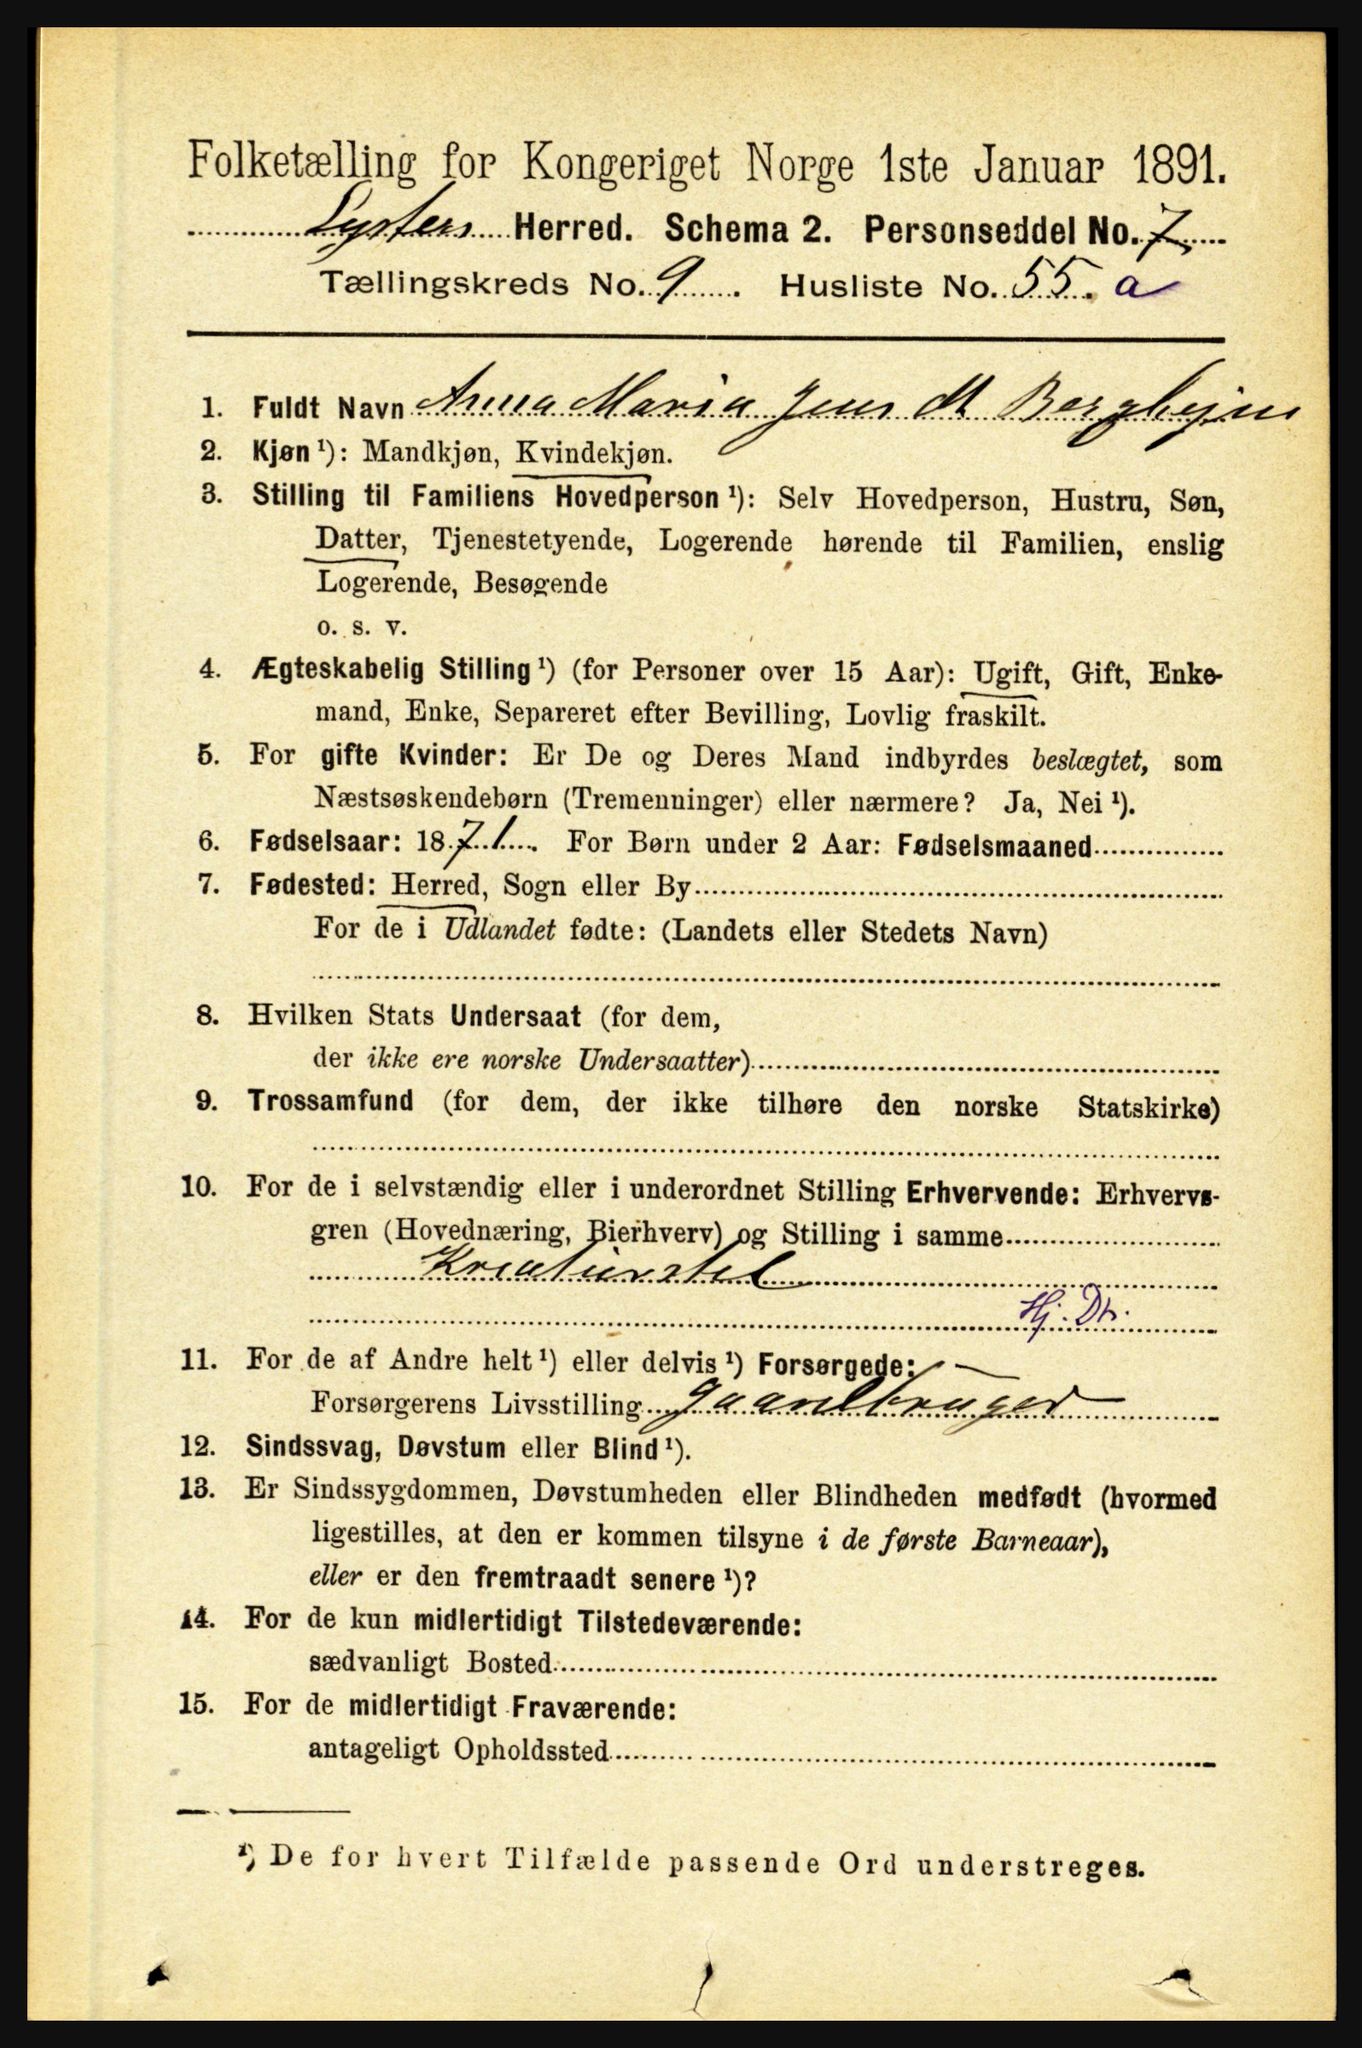 Folketælling for Kongeriget Norge 1ste Januar 1891.
Lysters Herred. Schema 2. Personseddel No. 7
Tællingskreds No. 9. Husliste No. 55. a
1. Fuldt Navn Anna Maria Jens dt
2. Kjøn ¹): Mandkjøn, Kvindekjøn.
3. Stilling til Familiens Hovedperson ¹): Selv Hovedperson, Hustru, Søn,
Datter, Tjenestetyende, Logerende hørende til Familien, enslig
Logerende, Besøgende
o. s. v.
4. Ægteskabelig Stilling ¹) (for Personer over 15 Aar): Ugift, Gift, Enke-
mand, Enke, Separeret efter Bevilling, Lovlig fraskilt.
5. For gifte Kvinder: Er De og Deres Mand indbyrdes beslægtet, som
Næstsøskendebørn (Tremenninger) eller nærmere? Ja, Nei ¹).
6. Fødselsaar: 1871. For Børn under 2 Aar: Fødselsmaaned
7. Fødested: Herred, Sogn eller By
For de i Udlandet fødte: (Landets eller Stedets Navn)
8. Hvilken Stats Undersaat (for dem,
der ikke ere norske Undersaatter)
9. Trossamfund (for dem, der ikke tilhøre den norske Statskirke)
10. For de i selvstændig eller i underordnet Stilling Erhvervende: Erhvervs-
gren (Hovednæring, Bierhverv) og Stilling i samme
Kreaturstel
Hj. Dt.
11. For de af Andre helt ¹) eller delvis ¹) Forsørgede:
Forsørgerens Livsstilling gaardbruger
12. Sindssvag, Døvstum eller Blind ¹).
13. Er Sindssygdommen, Døvstumheden eller Blindheden medfødt (hvormed
ligestilles, at den er kommen tilsyne i de første Barneaar),
eller er den fremtraadt senere ¹)?
14. For de kun midlertidigt Tilstedeværende:
sædvanligt Bosted
15. For de midlertidigt Fraværende:
antageligt Opholdssted
¹) De for hvert Tilfælde passende Ord understreges.